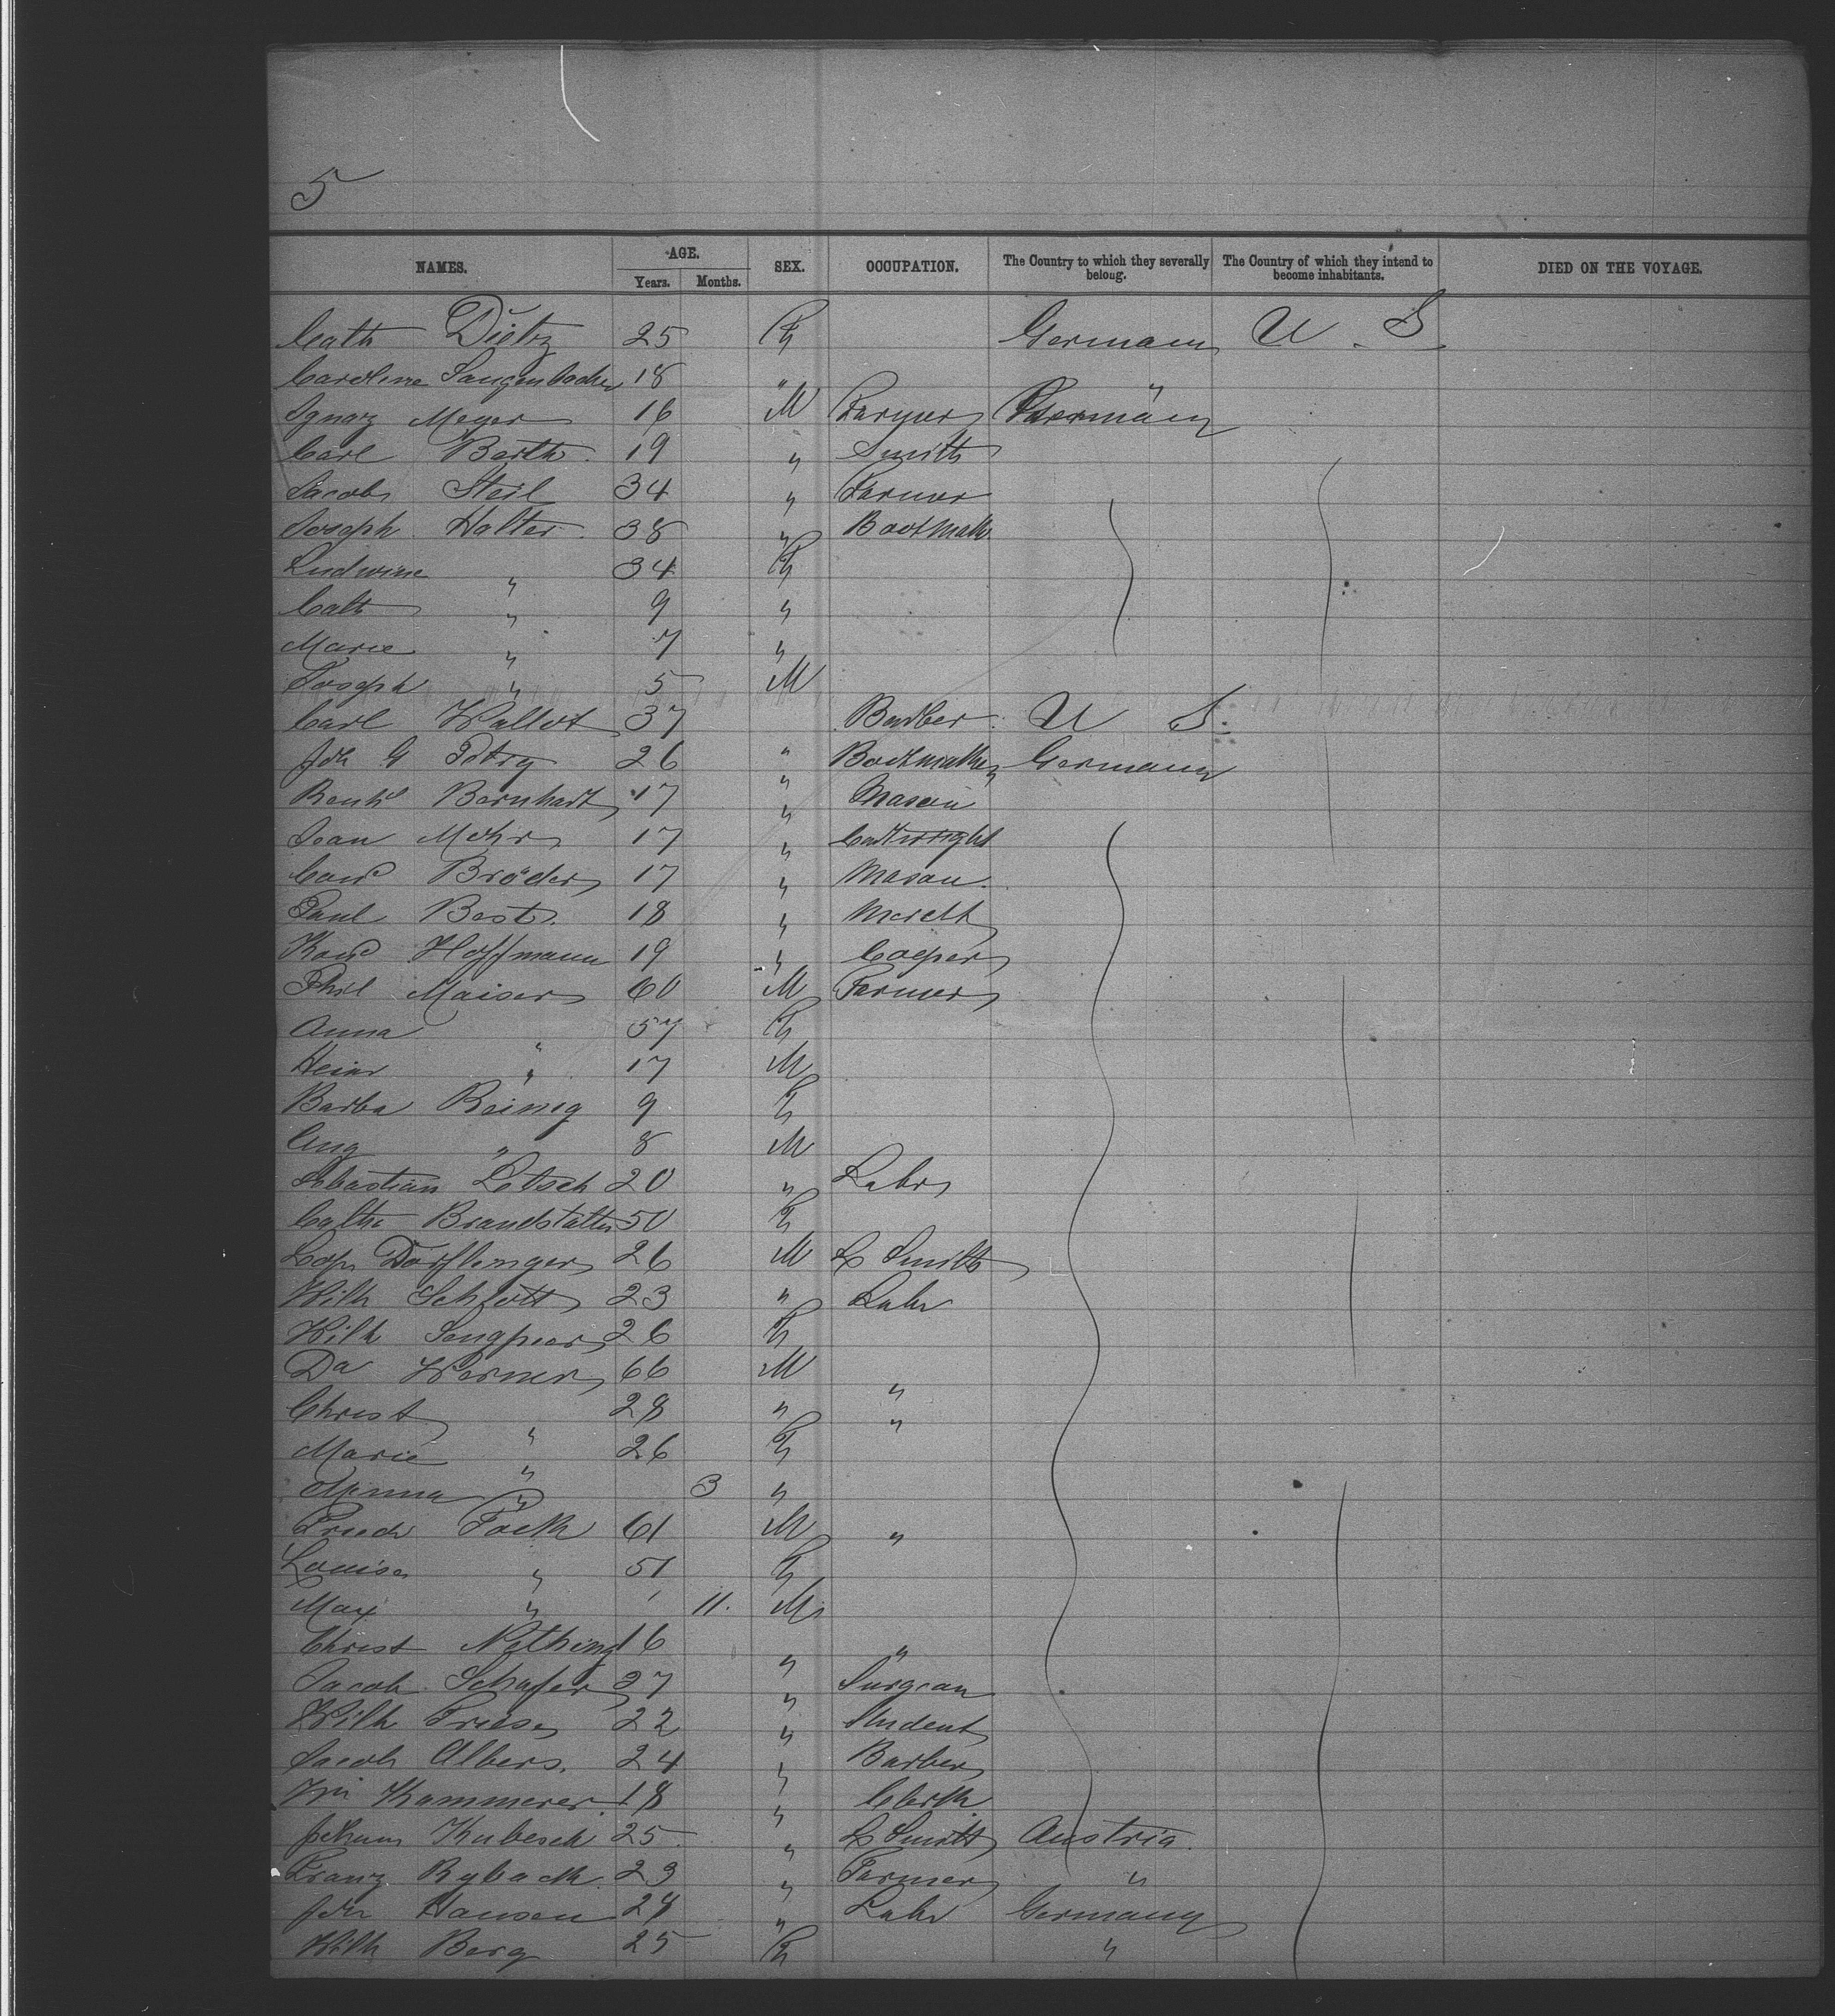 5
NAMES. AGE. Years. Months. SEX. OCCUPATION. The Country to which they severally belong. The Country of which they intend to become inhabitants. DIED ON THE VOYAGE.
Cath Dietz 25 F Germany U. S.
Caroline Langenbacher 18 " "
Ignaz Meyer 16 M Farmer Germany
Carl Barth 19 " Smith
Jacob Steil 34 " Farmer
Joseph Halter 38 " Bootmak
Ludwine " 34 F
Cath " 9 "
Marie " 7 "
Joseph " 5 M
Carl Wallot 37 Barber U S.
Joh G Petry 26 " Bootmaker Germany
Bernhart 17 " Mason
Jean Mohr 17 " Cartwright
Conrd Bröder 17 " Mason
Paul Best 18 " Mercht
Konrd Hoffmann 19 " Cooper
Phil Maiser 60 M Farmer
Anna " 57 F
Heinr " 17 M
Barba Reinig 9 F
Aug " 8 M
Sebastian Letsch 20 " Labr
Cathe Brandstatter 50 F
Leop Dorflinger 26 M L Smith
Wilh Schlott 23 " Labr
Wilh 26 F
Da Werner 66 M "
Christ " 28 " "
Marie " 26 F
Minna " 3 "
Friedr Fack 61 M "
Louise " 51 F
Max " 11 M
Christ Nothing 16 " "
Jacob Schafer 27 " Surgeon
Wilh Friese 22 " Student
Jacob Albers 24 " Barber
Wm Kammerer 18 " Clerk
Johann Kubesch 25 " L Smith Austria
Franz Ryback 23 " Farmer "
Joh Hansen 28 " Labr Germany
Wilh Berg 25 F "